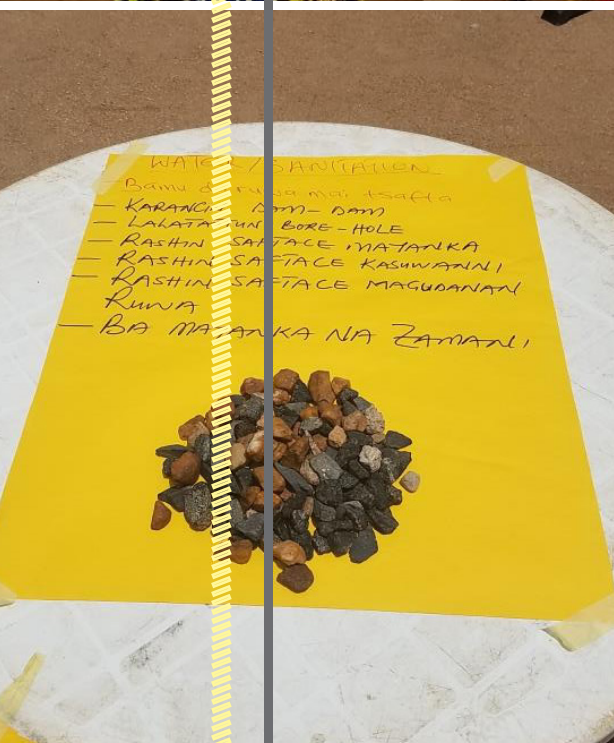 WATER/SANITATION
Bamu da ruwa mai tsafta
- KARANCIN DAM-DAM
- LALATATUN BORE-HOLE
- RASHIN SAFTACE MAYANKA
- RASHIN SAFTACE KASUWANNI
- RASHIN SAFTACE MAGUDANAN
RUWA
- BA MAYANKA NA ZAMANI